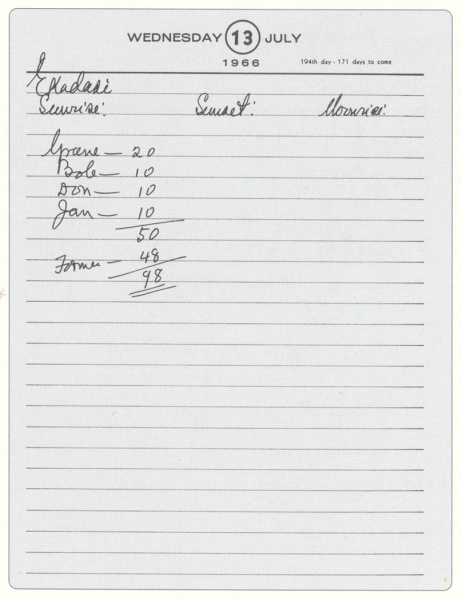 WEDNESDAY 13 JULY
1966 194th day - 171 days to come
Ekadasi
Sunrise: Sunset: Moonrise:
20
Bob — 10
Don — 10
Jan — 10
50
Former — 48
98